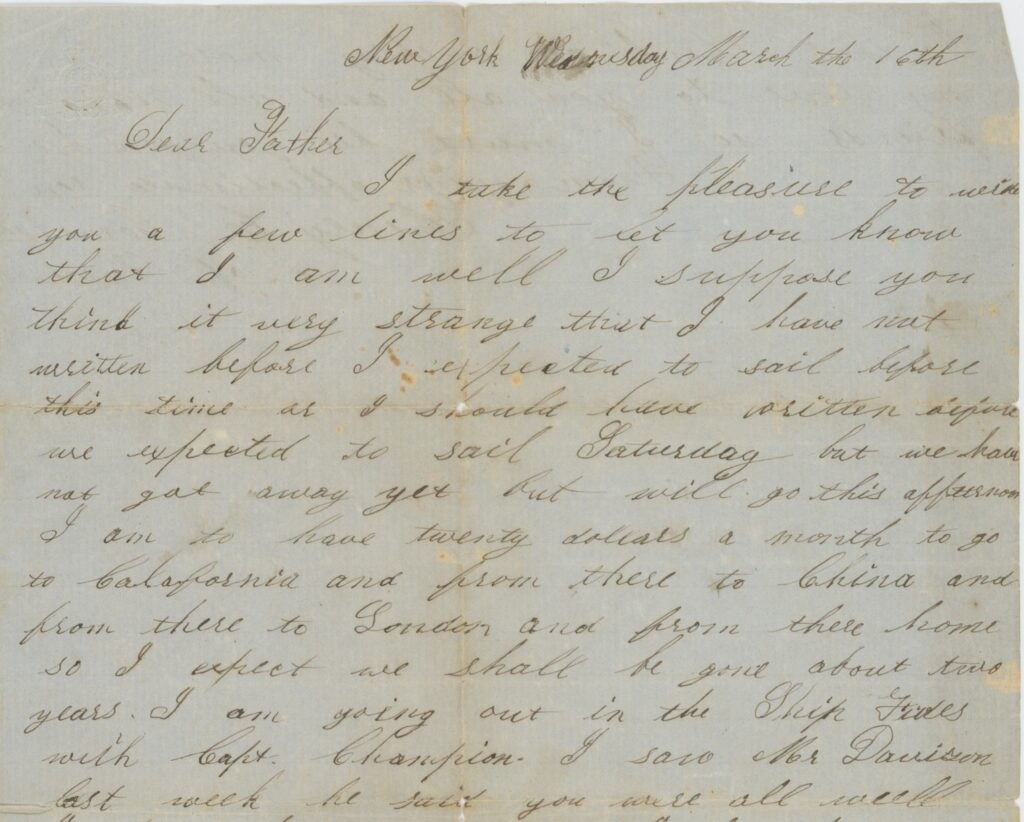 New York Wednesday March the 16th
Dear Father
I take the pleasure to write
you a few lines to let you know
that I am well I suppose you
think it very strange that I have not
written before I expected to sail before
this time or I should have written before
we expected to sail Saturday but we have
not got away yet but will go this affternon
I am to have twenty dollars a month to go
to Calafornia and from there to China and
from there to London and from there home
so I expect we shall be gone about two
years. I am going out in the Ship
with Capt. Champion. I saw Mr Davison
last week he said you were all well